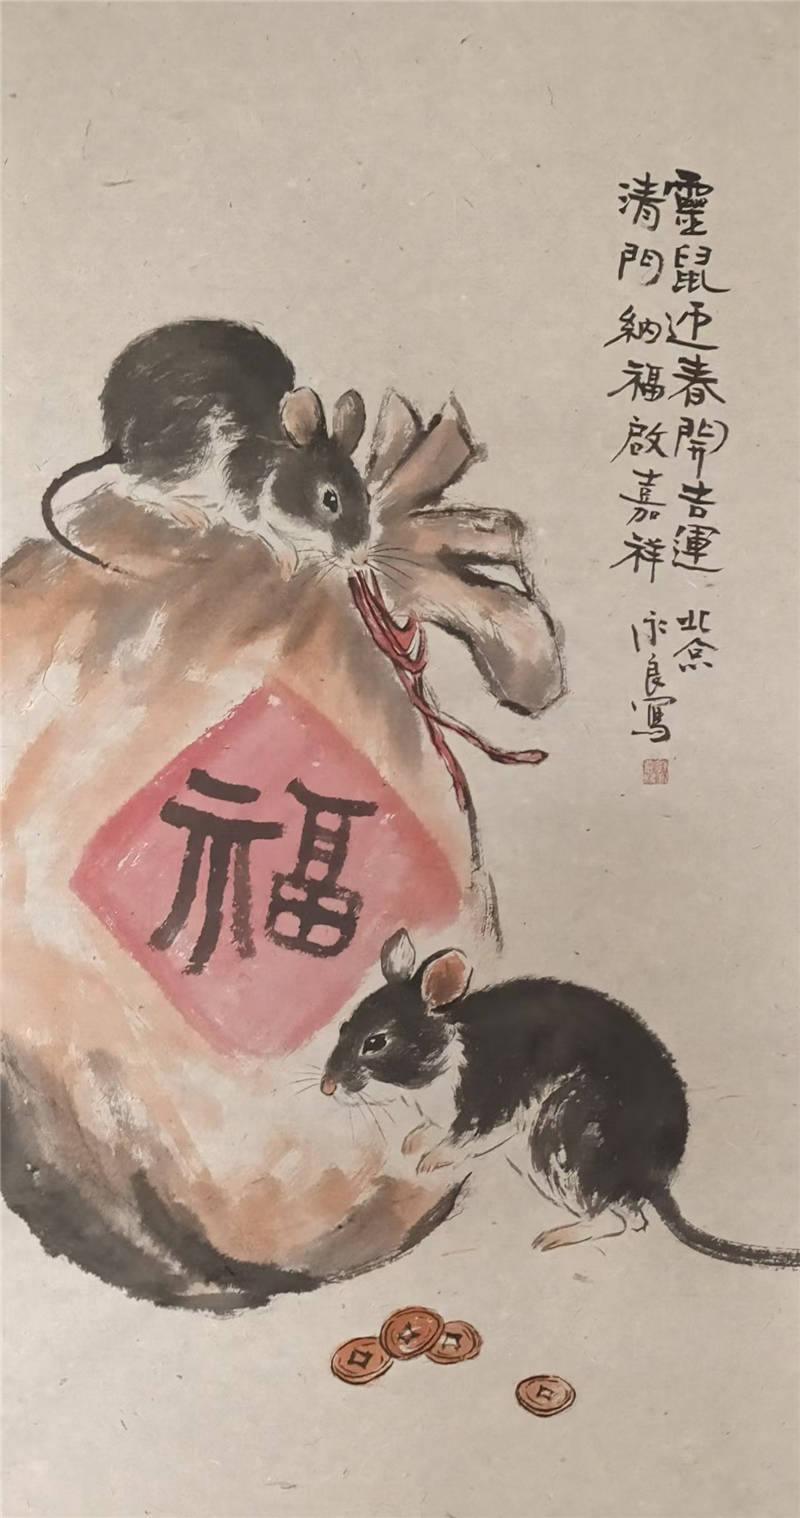 靈鼠迎春開吉運
清門納福啟嘉祥
北京
永良寫
福